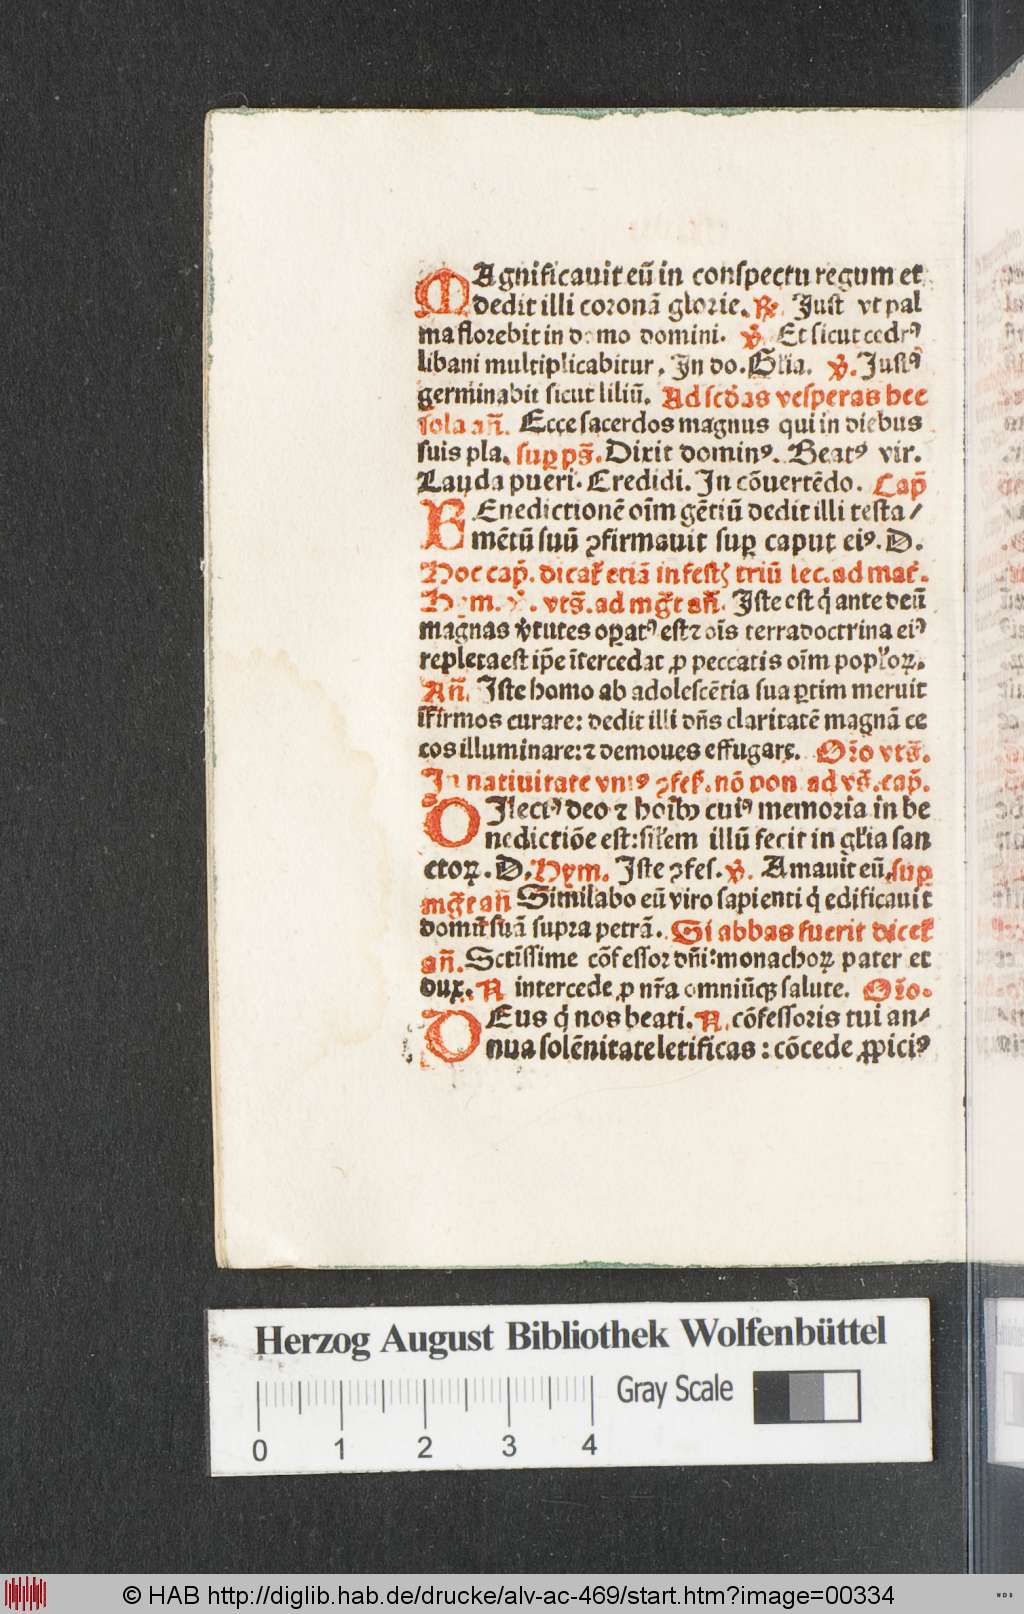 MAgnificauit eū in conspectu regum et
dedit illi coronā glorie. ℟. Just⁹ vt pal
ma florebit in domo domini. ℣. Et sicut cedr⁹
libani multiplicabitur. In do. Glia. ℣. Just⁹
germinabit sicut liliū. Ad scd̄as vesperas hec
sola an̄. Ecce sacerdos magnus qui in diebus
suis pla. sup̱ ps̄. Dixit domin⁹. Beat⁹ vir.
Lauda pueri. Credidi. In cōuertēdo. Cap̄
BEnedictionē oīm gētiū dedit illi testa/
mētū suū ꝯfirmauit sup̱ caput ei⁹. D.
Hoc cap̄. dicat̄ etiā in festꝭ triū lec. ad mat̄.
Hym. ℣. vts̄. ad mḡt an̄. Iste est q̄ ante deū
magnas v̄tutes oꝑat⁹ est ⁊ oīs terra doctrina ei⁹
repleta est ip̄e ītercedat ꝓ peccatis oīm popl'oꝝ.
An̄. Iste homo ab adolescētia sua ꝑtim meruit
īfirmos curare: dedit illi dn̄s claritatē magnā ce
cos illuminare: ⁊ demones effugare. Or̄o vts̄.
In natiuitate vni⁹ ꝯfes̄. nō pon. ad vs̄. cap̄.
DIlect⁹ deo ⁊ hoībꝫ cui⁹ memoria in be
nedictiōe est: sil'em illū fecit in gl'ia san
ctoꝝ. D. Hym. Iste ꝯfes. ℣. Amauit eū. sup̱
mḡt an̄ Similabo eū viro sapienti q̄ edificauit
domū suā supra petrā. Si abbas fuerit dicet̄
an̄. Sctīssime cōfessor dn̄i: monachoꝝ pater et
dux. N intercede ꝓ nr̄a omniūqꝫ salute. Or̄o.
DEus q̄ nos beati. N. cōfessoris tui an/
nua solēnitate letificas: cōcede ꝓpici⁹
Herzog August Bibliothek Wolfenbüttel
Gray Scale
0 1 2 3 4
© HAB http://diglib.hab.de/drucke/alv-ac-469/start.htm?image=00334